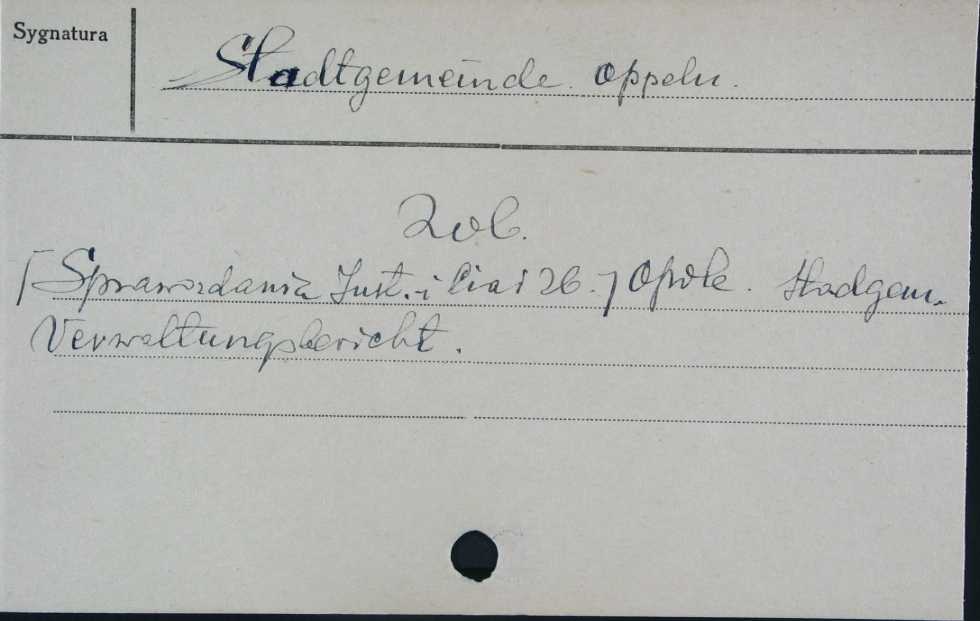 Sygnatura
Stadtgemeinde Oppeln.
Zob.
[Sprawozdania Inst. i Ciał zb.] Opole. Stadgem.
Verwaltungsbericht.